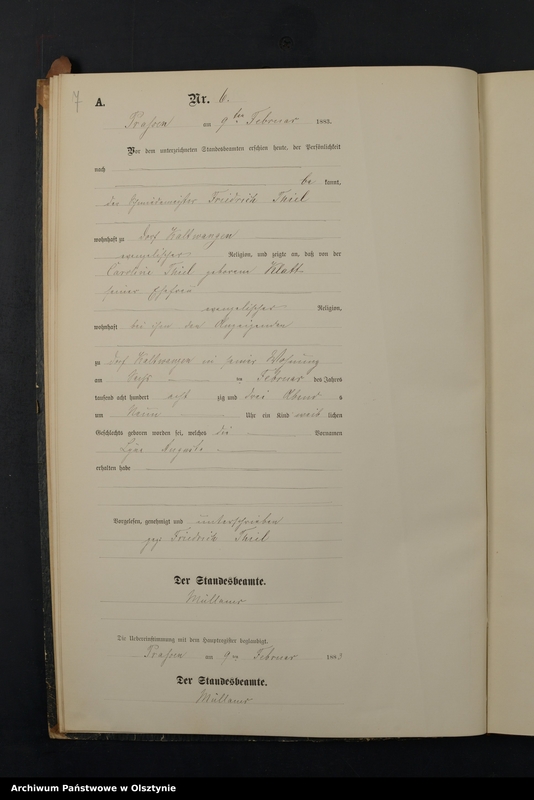 7
A.
Nr. 6.
Prassen am 9ten Februar 1883.
Vor dem unterzeichneten Standesbeamten erschien heute, der Persönlichkeit
nach
be kannt,
der Schmiedemeister Friedrich Thiel
wohnhaft zu Dorf Kaltwangen
evangelischer Religion, und zeigte an, daß von der
Caroline Thiel geborene Klatt
seiner Ehefrau
evangelischer Religion,
wohnhaft bei ihm dem Anzeigenden
zu Dorf Kaltwangen in seiner Wohnung
am ten Februar des Jahres
tausend acht hundert acht zig und drei Abend s
um Neun Uhr ein Kind weib lichen
Geschlechts geboren worden sei, welches die Vornamen
Auguste
erhalten habe
Vorgelesen, genehmigt und unterschrieben
gez. Friedrich Thiel
Der Standesbeamte.
Die Uebereinstimmung mit dem Hauptregister beglaubigt.
Prassen am 9ten Februar 1883
Der Standesbeamte.
Archiwum Państwowe w Olsztynie